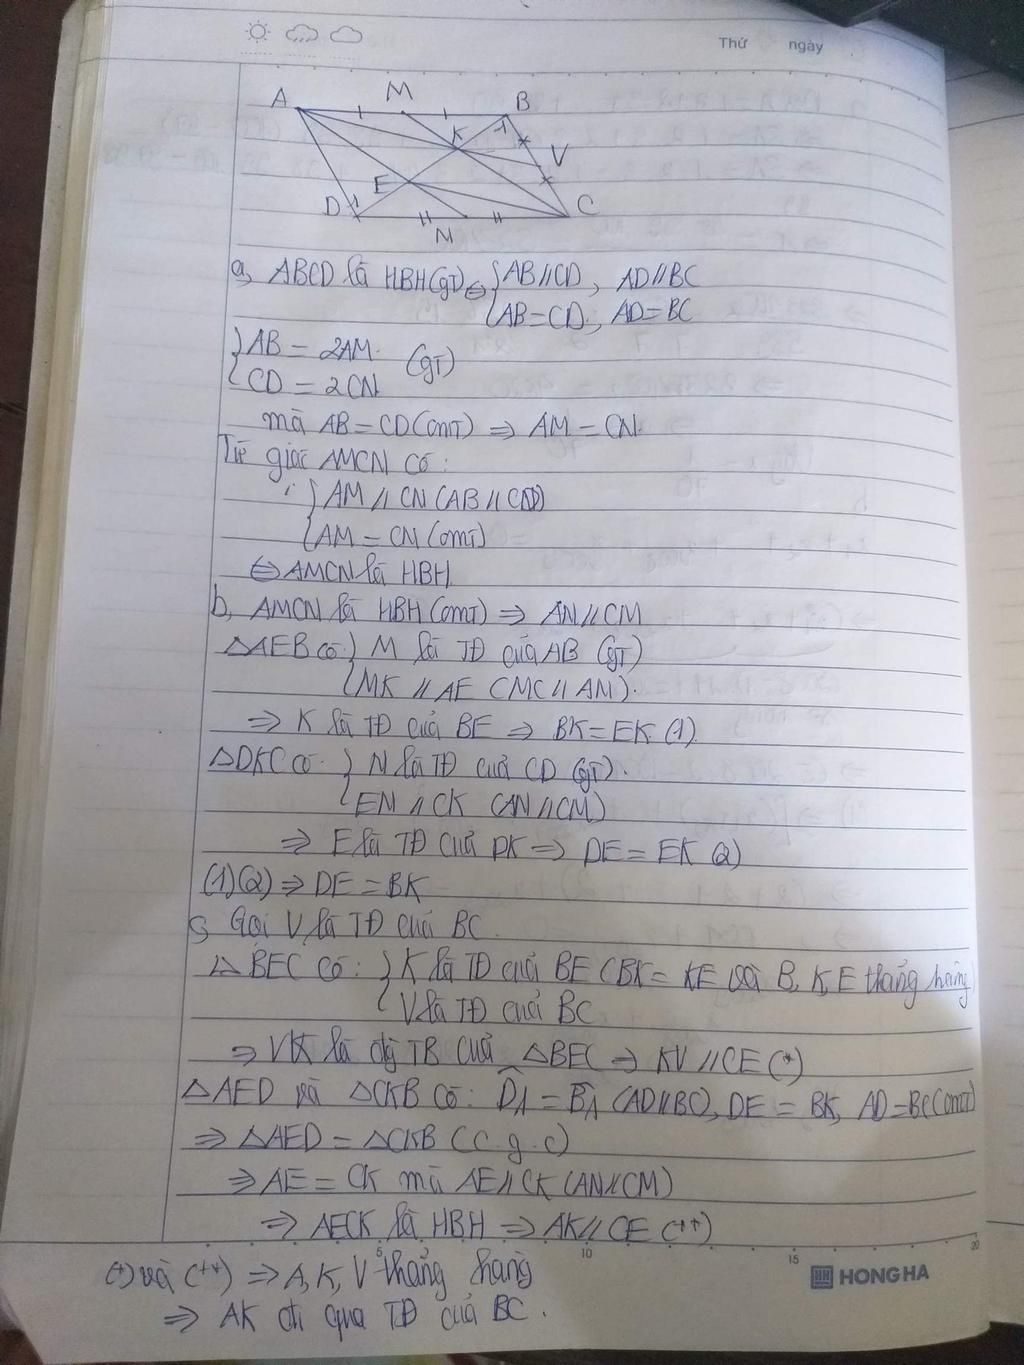 Thứ ngày
A M B
K V
E
D N C
a, ABCD là HBH(gT) ⇔ { AB//CD, AD//BC
AB=CD; AD=BC
{ AB = 2AM (gT)
CD = 2CN
mà AB=CD(cmT) ⇒ AM=CN
Tứ giác AMCN có:
{ AM // CN (AB // CD)
AM = CN (cmT)
⇔ AMCN là HBH
b, AMCN là HBH (cmT) ⇒ AN//CM
△AEB có { M là TĐ của AB (gT)
MK // AE (MC // AM).
⇒ K là TĐ của BE ⇒ BK=EK (1)
△DKC có { N là TĐ của CD (gT).
EN // CK (AN//CM)
⇒ E là TĐ của DK ⇒ DE = EK (2)
(1)(2) ⇒ DE=BK
c, Gọi V là TĐ của BC
△BEC có: { K là TĐ của BE (BK= KE và B, K, E thẳng hàng)
V là TĐ của BC
⇒ VK là đg TB của △BEC ⇒ KV // CE (*)
△AED và △CKB có: D̂1 = B̂1 (AD//BC), DE = BK, AD=BC(cmT)
⇒ △AED = △CKB (c.g.c)
⇒ AE = CK mà AE//CK (AN//CM)
⇒ AECK là HBH ⇒ AK//CE (**)
5 10 15 20
HONG HA
(*) và (**) ⇒ A, K, V thẳng hàng
⇒ AK đi qua TĐ của BC.